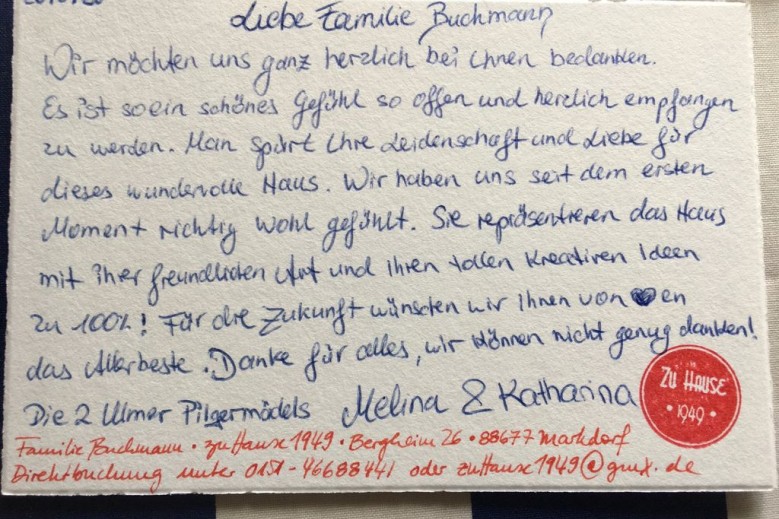 Liebe Familie Buchmann
Wir möchten uns ganz herzlich bei Ihnen bedanken.
Es ist so ein schönes Gefühl so offen und herzlich empfangen
zu werden. Man spürt Ihre Leidenschaft und Liebe für
dieses wundervolle Haus. Wir haben uns seit dem ersten
Moment richtig wohl gefühlt. Sie repräsentieren das Haus
mit ihrer freundlichen Art und ihren tollen kreativen Ideen
zu 100%! Für die Zukunft wünschen wir Ihnen von ♥en
das Allerbeste. Danke für alles, wir können nicht genug danken!
Die 2 Ulmer Pilgermädels Melina & Katharina
ZU HAUSE
• 1949 •
Familie Buchmann • zuHause 1949 • Bergheim 26 • 88677 Markdorf
Direktbuchung unter 0151-46688441 oder zuHause1949@gmx.de